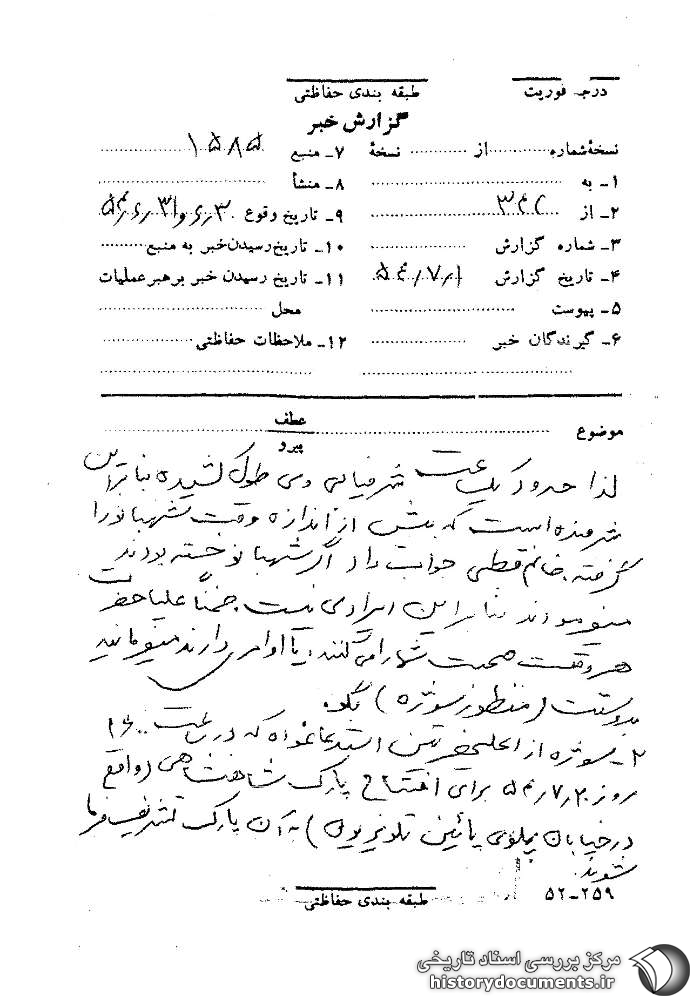 درجه فوریت
طبقه بندی حفاظتی
گزارش خبر
نسخهٔ شماره ............ از ............ نسخهٔ
۷ـ منبع ۱۵۸۵
۱ـ به
۸ـ منشأ
۲ـ از ۳۴۲
۹ـ تاریخ وقوع ۳۰ر۶ و ۳۱ر۶ر۵۴
۳ـ شماره گزارش
۱۰ـ تاریخ رسیدن خبر به منبع
۴ـ تاریخ گزارش ۱ر۷ر۵۴
۱۱ـ تاریخ رسیدن خبر برهبر عملیات
۵ـ پیوست
محل
۶ـ گیرندگان خبر
۱۲ـ ملاحظات حفاظتی
موضوع
عطف
پیرو
لذا حدود یک ساعت شرفیابی وی طول کشیده بنابراین
شرمنده است که بیش از اندازه وقت شهبانو را
گرفته. خانم قطبی جواب داد اگر شهبانو خسته بودند
میفرمودند بنابراین ایرادی نیست. ضمناً علیاحضرت
هر وقت صحبت شما را می کنند، یا اوامری دارند میفرمایند
بدوستت (منظور سوژه) بگو.
۲ـ سوژه از اعلیحضرتین استدعا خواه که در ساعت ۱۶۰۰
روز ۲۰ر۷ر۵۴ برای افتتاح پارک شاهنشاهی (واقع
در خیابان پهلوی پائین تلویزیون) به آن پارک تشریف فرما
شوند.
۵۲-۲۵۹
طبقه بندی حفاظتی
مرکز بررسی اسناد تاریخی
historydocuments.ir